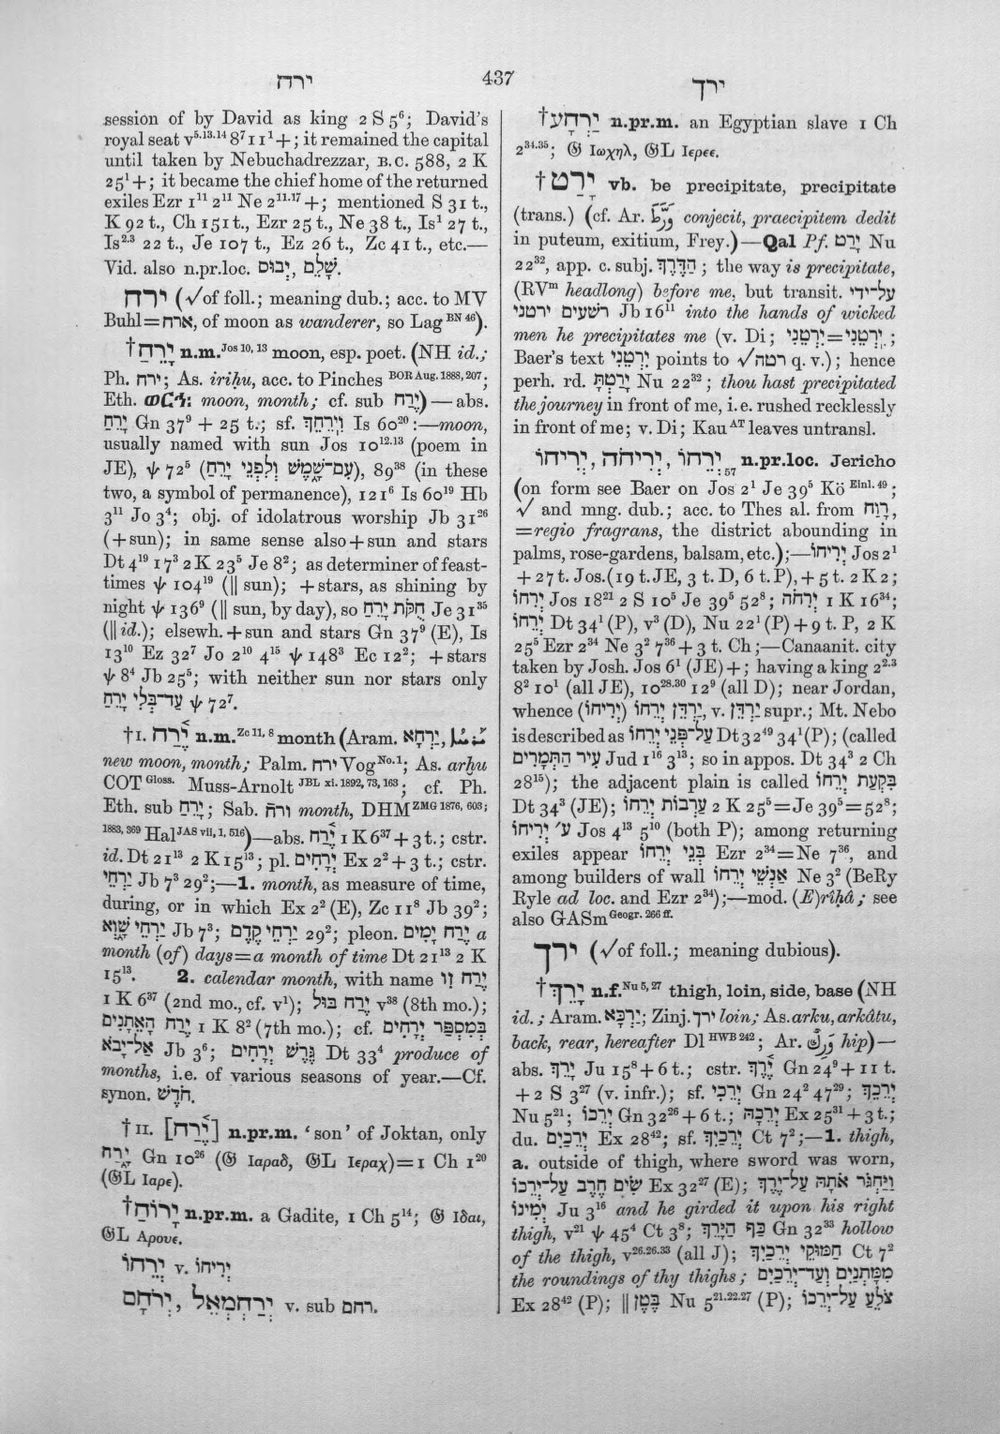 ירח
437
ירך
session of by David as king 2 S 5⁶; David's
royal seat v⁵·¹³·¹⁴ 8⁷ 11¹ +; it remained the capital
until taken by Nebuchadrezzar, B.C. 588, 2 K
25¹ +; it became the chief home of the returned
exiles Ezr 1¹¹ 2¹¹ Ne 2¹¹·¹⁷ +; mentioned S 31 t.,
K 92 t., Ch 151 t., Ezr 25 t., Ne 38 t., Is¹ 27 t.,
Is²·³ 22 t., Je 107 t., Ez 26 t., Zc 41 t., etc.—
Vid. also n.pr.loc. יְבוּס, שָׁלֵם.
ירח (√of foll.; meaning dub.; acc. to MV
Buhl=ארח, of moon as wanderer, so Lag BN 46).
†יָרֵחַ n.m. Jos 10, 13 moon, esp. poet. (NH id.;
Ph. ירח; As. iriḫu, acc. to Pinches BOR Aug. 1888, 207;
Eth. ወርኅ: moon, month; cf. sub יֶרַח)—abs.
יָרֵחַ Gn 37⁹ + 25 t.; sf. יְרֵחֵךְ Is 60²⁰:—moon,
usually named with sun Jos 10¹²·¹³ (poem in
JE), ψ 72⁵ (עִם־שֶׁמֶשׁ וְלִפְנֵי יָרֵחַ), 89³⁸ (in these
two, a symbol of permanence), 121⁶ Is 60¹⁹ Hb
3¹¹ Jo 3⁴; obj. of idolatrous worship Jb 31²⁶
(+sun); in same sense also+sun and stars
Dt 4¹⁹ 17³ 2 K 23⁵ Je 8²; as determiner of feast-
times ψ 104¹⁹ (‖ sun); +stars, as shining by
night ψ 136⁹ (‖ sun, by day), so חֻקֹּת יָרֵחַ Je 31³⁵
(‖ id.); elsewh. +sun and stars Gn 37⁹ (E), Is
13¹⁰ Ez 32⁷ Jo 2¹⁰ 4¹⁵ ψ 148³ Ec 12²; +stars
ψ 8⁴ Jb 25⁵; with neither sun nor stars only
עַד־בְּלִי יָרֵחַ ψ 72⁷.
†I. יֶרַח n.m. Zc 11, 8 month (Aram. יַרְחָא,
new moon, month; Palm. ירח Vog No. 1; As. arḫu
COT Gloss. Muss-Arnolt JBL xi. 1892, 73, 163; cf. Ph.
Eth. sub יָרֵחַ; Sab. ורח month, DHM ZMG 1876, 603;
1883, 369 Hal JAS vii, 1, 516)—abs. יֶרַח 1 K 6³⁷ + 3 t.; cstr.
id. Dt 21¹³ 2 K 15¹³; pl. יְרָחִים Ex 2² + 3 t.; cstr.
יַרְחֵי Jb 7³ 29²;—1. month, as measure of time,
during, or in which Ex 2² (E), Zc 11⁸ Jb 39²;
יַרְחֵי שָׁוְא Jb 7³; יַרְחֵי קֶדֶם 29²; pleon. יֶרַח יָמִים a
month (of) days=a month of time Dt 21¹³ 2 K
15¹³. 2. calendar month, with name יֶרַח זִו
1 K 6³⁷ (2nd mo., cf. v¹); יֶרַח בּוּל v³⁸ (8th mo.);
יֶרַח הָאֵתָנִים 1 K 8² (7th mo.); cf. בְּמִסְפַּר יְרָחִים
אַל־יָבֹא Jb 3⁶; גֶּרֶשׁ יְרָחִים Dt 33⁴ produce of
months, i.e. of various seasons of year.—Cf.
synon. חֹדֶשׁ.
†II. [יֶרַח] n.pr.m. ‘son’ of Joktan, only
יָרַח Gn 10²⁶ (𝔊 Ιαραδ, 𝔊L Ιεραχ)=1 Ch 1²⁰
(𝔊L Ιαρε).
†יָרוֹחַ n.pr.m. a Gadite, 1 Ch 5¹⁴; 𝔊 Ιδαι,
𝔊L Αρουε.
יְרֵחוֹ v. יְרִיחוֹ
יְרַחְמְאֵל, יְרֹחָם v. sub רחם.
†יַרְחָע n.pr.m. an Egyptian slave 1 Ch
2³⁴·³⁵; 𝔊 Ιωχηλ, 𝔊L Ιερεε.
†יָרַט vb. be precipitate, precipitate
(trans.) (cf. Ar. وَرَّطَ conjecit, praecipitem dedit
in puteum, exitium, Frey.)—Qal Pf. יָרַט Nu
22³², app. c. subj. הַדֶּרֶךְ; the way is precipitate,
(RVᵐ headlong) before me, but transit. עַל־יְדֵי
רשעים ירטני Jb 16¹¹ into the hands of wicked
men he precipitates me (v. Di; יִרְטֵנִי=יִירְטֵנִי;
Baer's text יְרָטֵנִי points to √רטה q. v.); hence
perh. rd. יָרַטְתָּ Nu 22³²; thou hast precipitated
the journey in front of me, i.e. rushed recklessly
in front of me; v. Di; Kau AT leaves untransl.
יְרֵחוֹ, יְרִיחֹה, יְרִיחוֹ 57 n.pr.loc. Jericho
(on form see Baer on Jos 2¹ Je 39⁵ Kö Einl. 49;
√ and mng. dub.; acc. to Thes al. from רָוַח,
=regio fragrans, the district abounding in
palms, rose-gardens, balsam, etc.);—יְרִיחוֹ Jos 2¹
+ 27 t. Jos. (19 t. JE, 3 t. D, 6 t. P), + 5 t. 2 K 2;
יְרִחוֹ Jos 18²¹ 2 S 10⁵ Je 39⁵ 52⁸; יְרִחֹה 1 K 16³⁴;
יְרֵחוֹ Dt 34¹ (P), v³ (D), Nu 22¹ (P) + 9 t. P, 2 K
25⁵ Ezr 2³⁴ Ne 3² 7³⁶ + 3 t. Ch;—Canaanit. city
taken by Josh. Jos 6¹ (JE)+; having a king 2²·³
8² 10¹ (all JE), 10²⁸·³⁰ 12⁹ (all D); near Jordan,
whence (יְרִיחוֹ) יַרְדֵּן יְרֵחוֹ, v. יַרְדֵּן supr.; Mt. Nebo
is described as עַל־פְּנֵי יְרֵחוֹ Dt 32⁴⁹ 34¹ (P); (called
עִיר הַתְּמָרִים Jud 1¹⁶ 3¹³; so in appos. Dt 34³ 2 Ch
28¹⁵); the adjacent plain is called בִּקְעַת יְרֵחוֹ
Dt 34³ (JE); עַרְבוֹת יְרֵחוֹ 2 K 25⁵=Je 39⁵=52⁸;
ע׳ יְרִיחוֹ Jos 4¹³ 5¹⁰ (both P); among returning
exiles appear בְּנֵי יְרֵחוֹ Ezr 2³⁴=Ne 7³⁶, and
among builders of wall אַנְשֵׁי יְרֵחוֹ Ne 3² (BeRy
Ryle ad loc. and Ezr 2³⁴);—mod. (E)rîḥâ; see
also GASm Geogr. 266 ff.
ירך (√of foll.; meaning dubious).
†יָרֵךְ n.f. Nu 5, 27 thigh, loin, side, base (NH
id.; Aram. יַרְכָּא; Zinj. ירך loin; As. arku, arkâtu,
back, rear, hereafter Dl HWB 242; Ar. وَرِكٌ hip)—
abs. יָרֵךְ Ju 15⁸ + 6 t.; cstr. יֶרֶךְ Gn 24⁹ + 11 t.
+ 2 S 3²⁷ (v. infr.); sf. יְרֵכִי Gn 24² 47²⁹; יְרֵכֵךְ
Nu 5²¹; יְרֵכוֹ Gn 32²⁶ + 6 t.; יְרֵכָהּ Ex 25³¹ + 3 t.;
du. יְרֵכַיִם Ex 28⁴²; sf. יְרֵכַיִךְ Ct 7²;—1. thigh,
a. outside of thigh, where sword was worn,
שִׂים חֶרֶב עַל־יְרֵכוֹ Ex 32²⁷ (E); וַיַּחְגֹּר אֹתָהּ עַל־יֶרֶךְ
יְמִינוֹ Ju 3¹⁶ and he girded it upon his right
thigh, v²¹ ψ 45⁴ Ct 3⁸; כַּף הַיָּרֵךְ Gn 32³³ hollow
of the thigh, v²⁶·²⁶·³³ (all J); חַמּוּקֵי יְרֵכַיִךְ Ct 7²
the roundings of thy thighs; מִמָּתְנַיִם וְעַד־יְרֵכַיִם
Ex 28⁴² (P); ‖ בֶּטֶן Nu 5²¹·²²·²⁷ (P); צֹלֵעַ עַל־יְרֵכוֹ